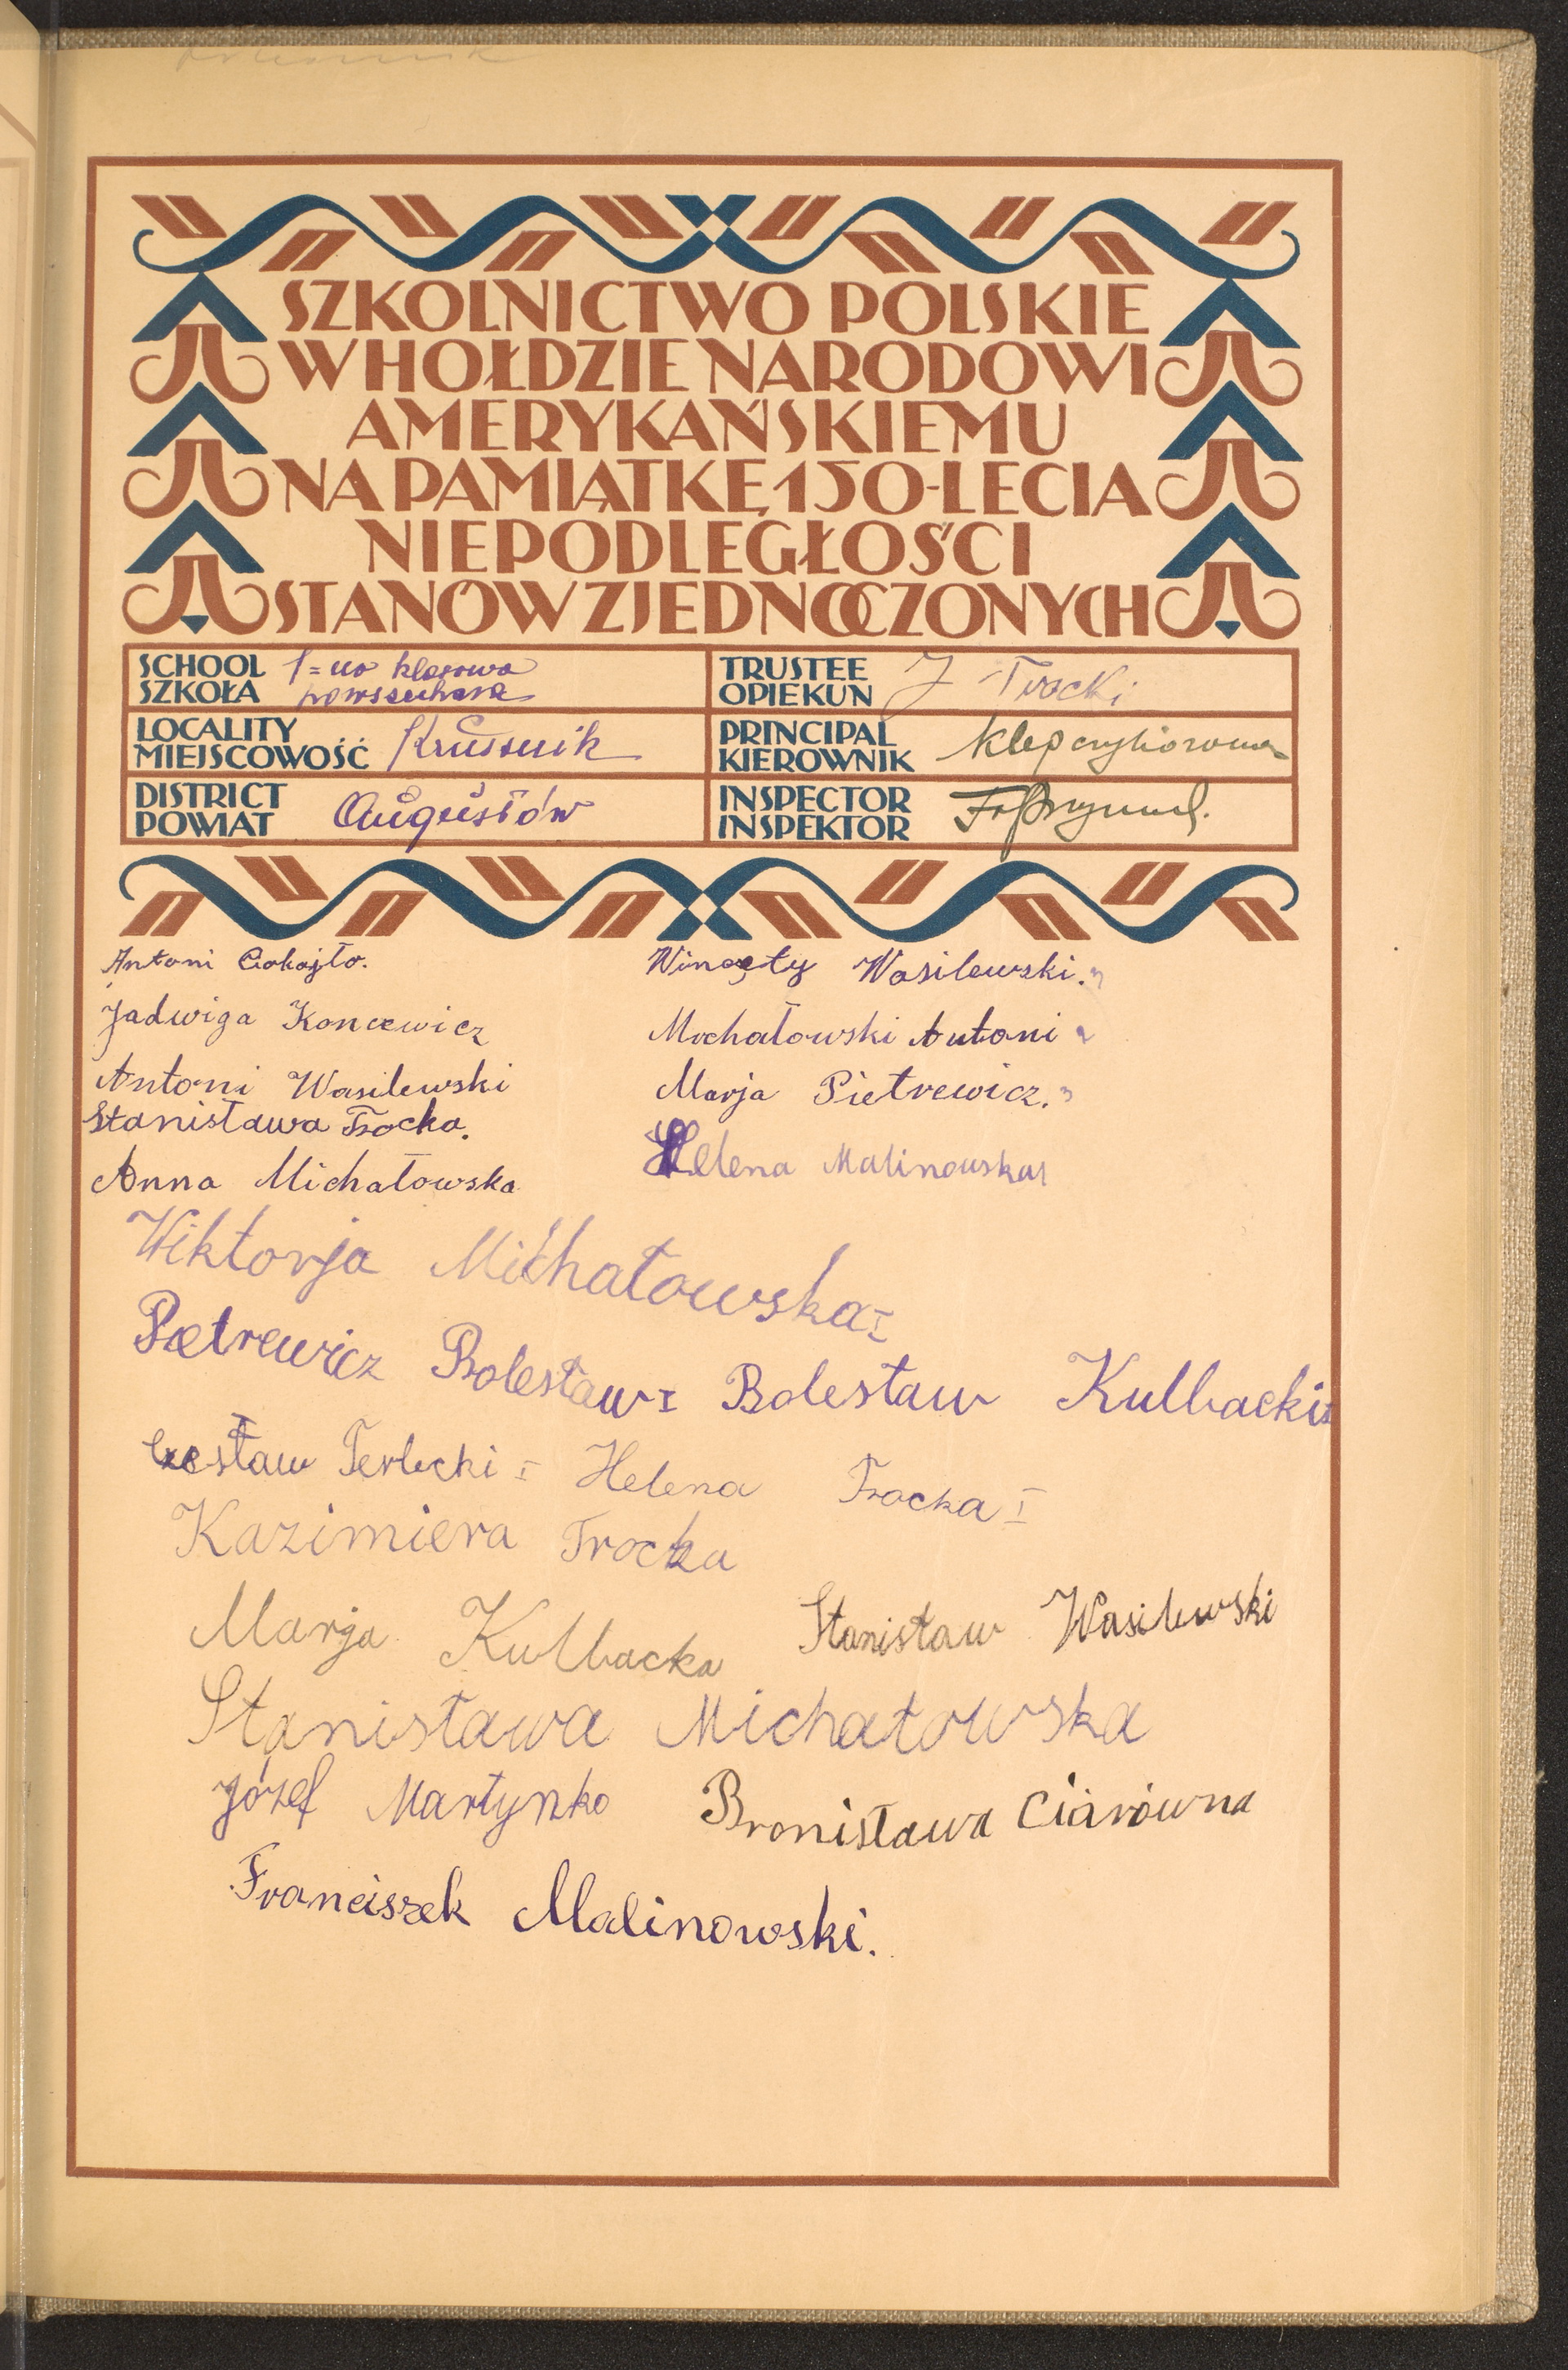 SZKOLNICTWO POLSKIE
W HOŁDZIE NARODOWI
AMERYKAŃSKIEMU
NA PAMIĄTKĘ 150-LECIA
NIEPODLEGŁOŚCI
STANÓW ZJEDNOCZONYCH
SCHOOL
SZKOŁA
1=no klasowa
powszechna
TRUSTEE
OPIEKUN
J Trocki
LOCALITY
MIEJSCOWOŚĆ
Krusznik
PRINCIPAL
KIEROWNIK
DISTRICT
POWIAT
Augustów
INSPECTOR
INSPEKTOR
Antoni
Winczty Wasilewski.
Jadwiga Koncewicz
Mochałowski Antoni
Antoni Wasilewski
Marja Pietrewicz.
Stanisława Trocka.
Helena Malinowska
Anna Michałowska
Wiktorja Michałowska I
Pietrewicz Bolesław I Bolesław Kulbacki
Czesław Terlecki I Helena Trocka I
Kazimiera Trocka
Marja Kulbacka Stanisław Wasilewski
Stanisława Michałowska
Józef Martynko Bronisława Ciarówna
Franciszek Malinowski.